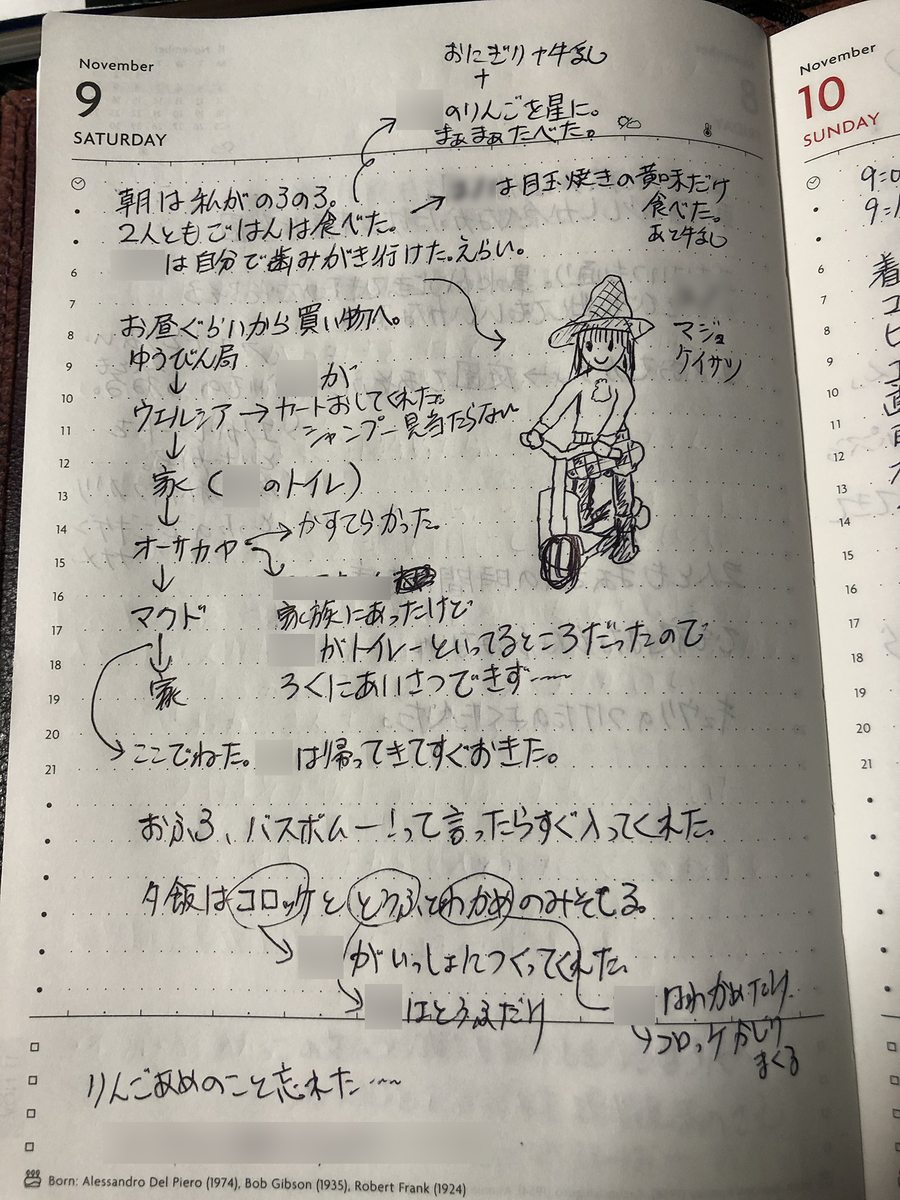 November
9
SATURDAY
おにぎり+牛乳
+
のりんごを星に。
まぁまぁたべた。
朝は私がのろのろ。
2人ともごはんは食べた。
は目玉焼きの黄味だけ
食べた。
あと牛乳
は自分で歯みがき行けた。えらい。
お昼ぐらいから買い物へ。
ゆうびん局
が
ウエルシア→カートおしてくれた。
シャンプー見当たらない
家(のトイレ)
オーサカヤ→かすてらかった。
マクド
家族にあったけど
がトイレーといってるところだったので
家
ろくにあいさつできず……
ここでねた。は帰ってきてすぐおきた。
マジョ
ケイサツ
おふろ、バスボムー!って言ったらすぐ入ってくれた。
夕飯はコロッケととうふとわかめのみそしる。
がいっしょにつくってくれた。
はとうふだけ
はわかめだけ
コロッケかじり
まくる
りんごあめのこと忘れた……
6
7
8
9
10
11
12
13
14
15
16
17
18
19
20
21
Born: Alessandro Del Piero (1974), Bob Gibson (1935), Robert Frank (1924)
November
10
SUNDAY
6
7
8
9
10
11
12
13
14
15
16
17
18
19
20
21